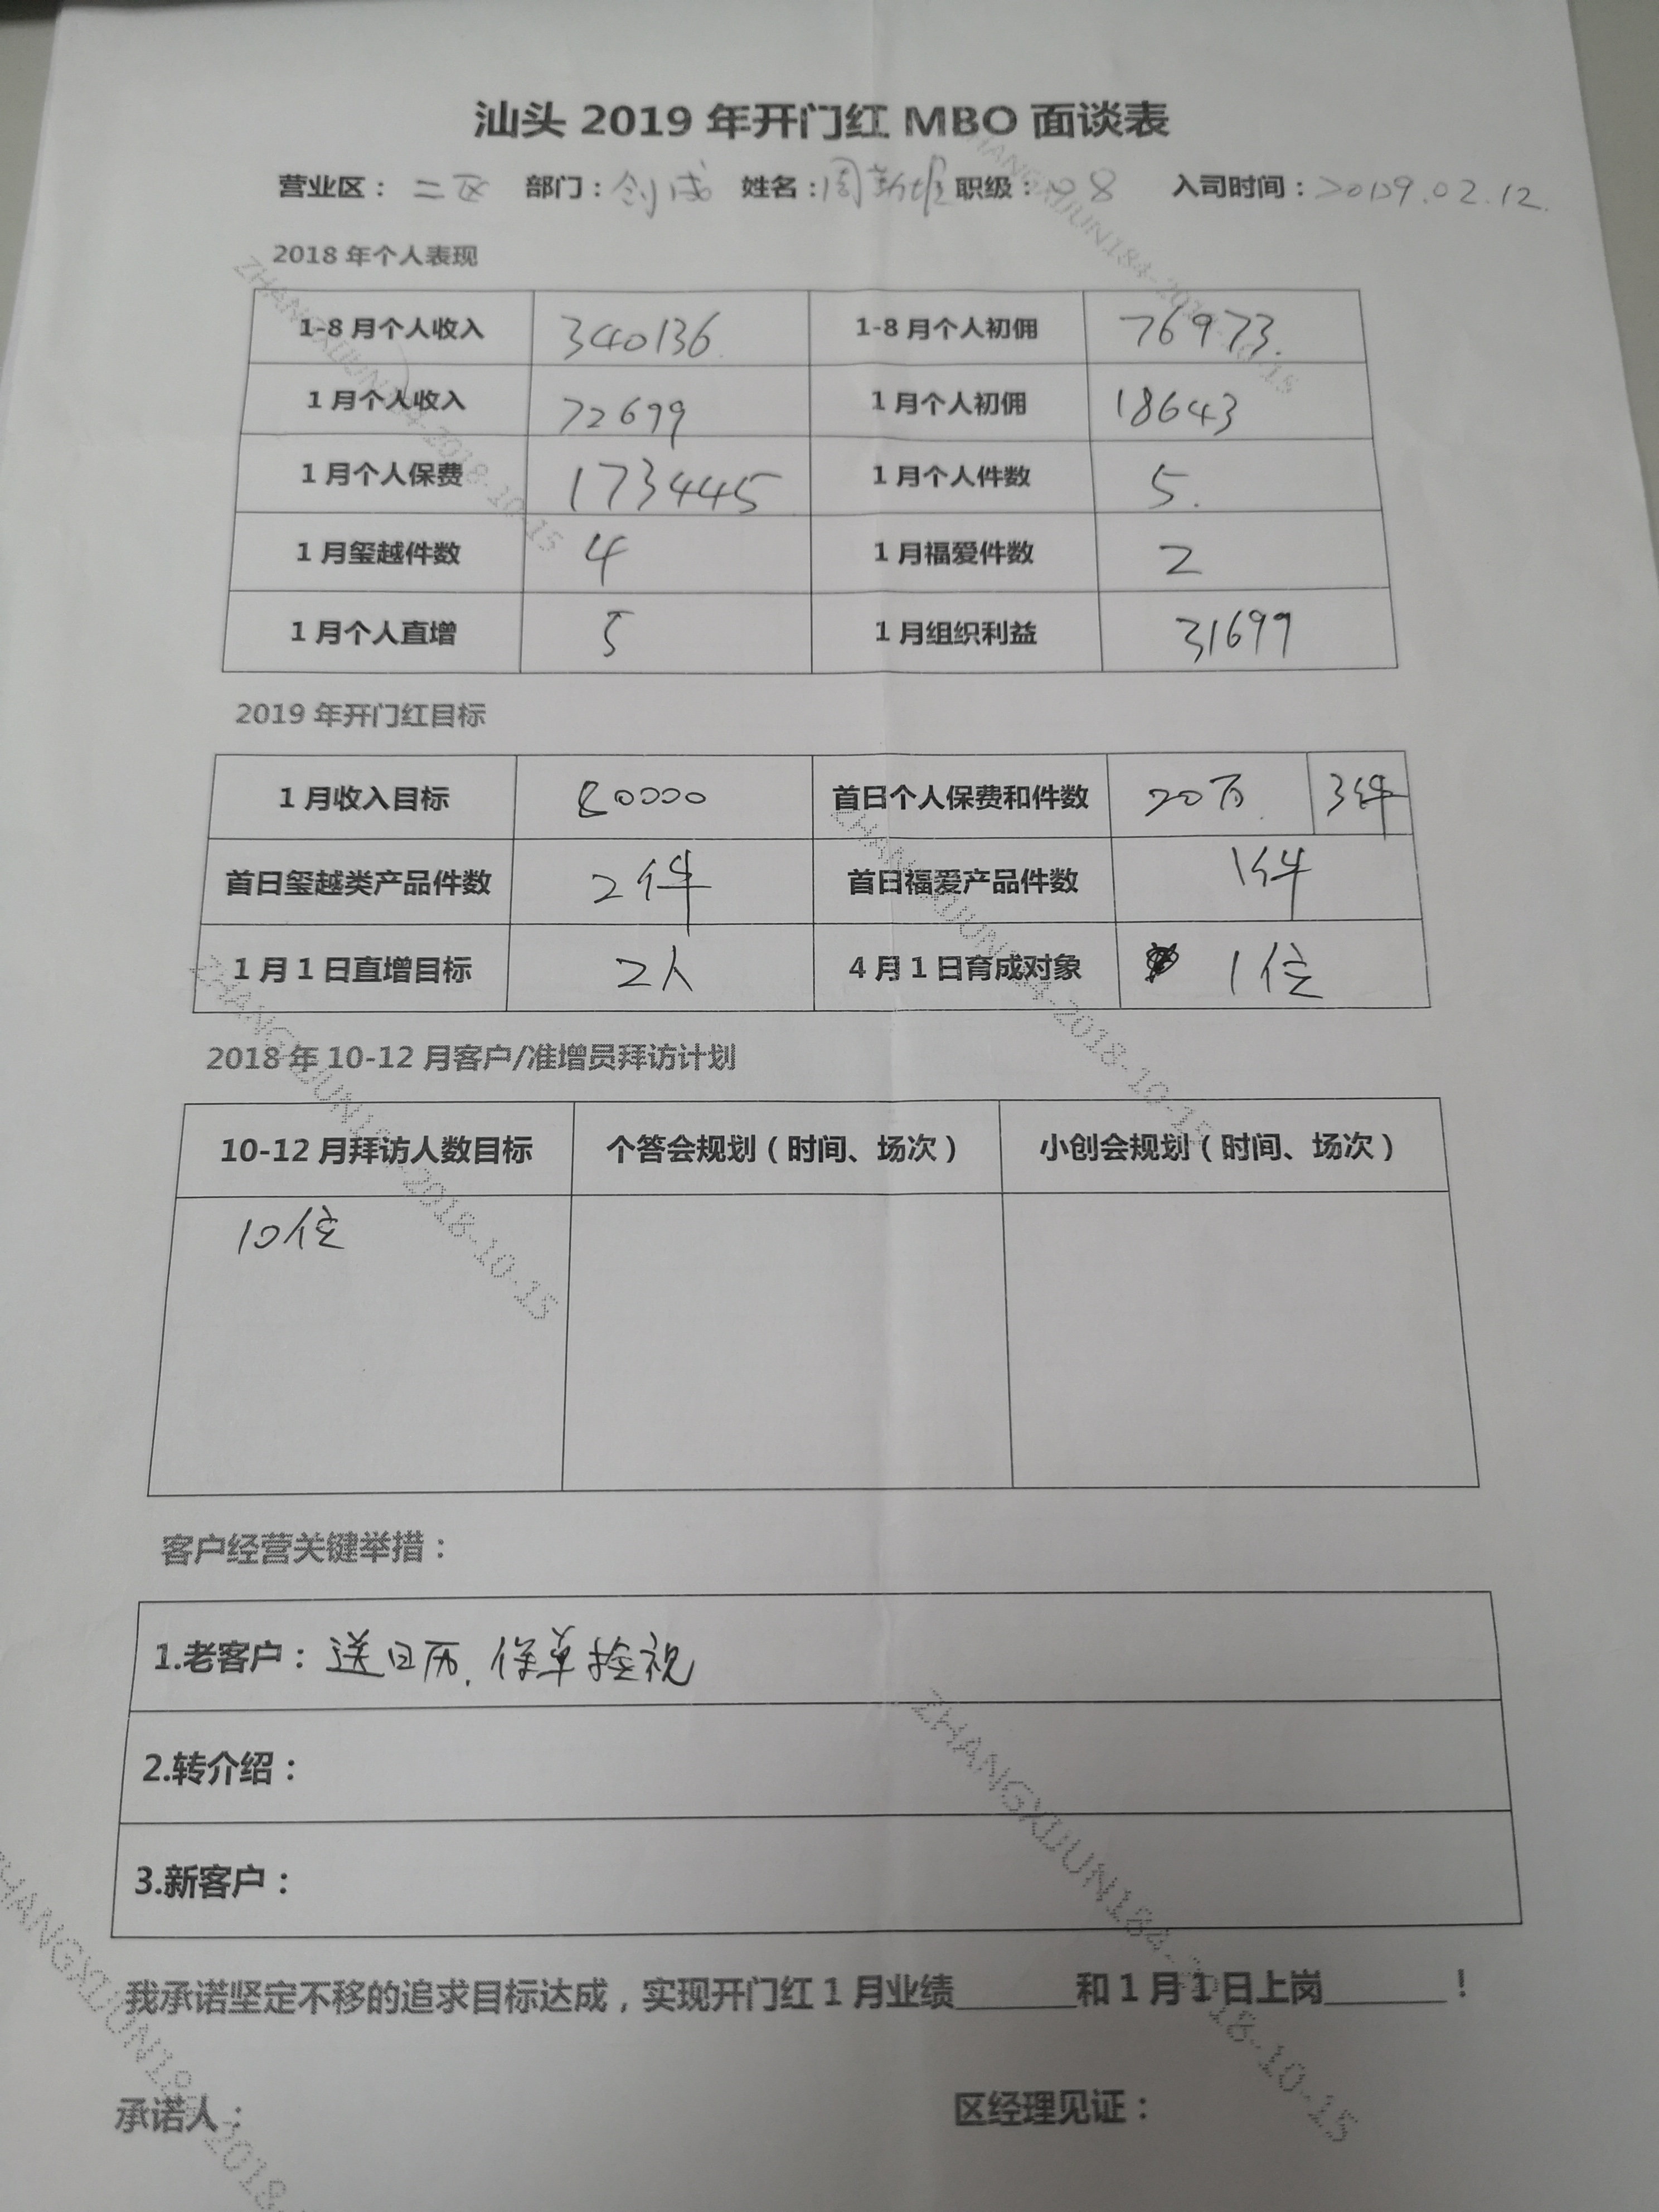 汕头 2019 年开门红 MBO 面谈表
营业区：二区 部门：创成 姓名：周勤 职级：8 入司时间：.02.12.
2018 年个人表现
1-8 月个人收入 340136. 1-8 月个人初佣 76973.
1 月个人收入 72699 1 月个人初佣 18643
1 月个人保费 173445 1 月个人件数 5.
1 月玺越件数 4 1 月福爱件数 2
1 月个人直增 5 1 月组织利益 31699
2019 年开门红目标
1 月收入目标 80000 首日个人保费和件数 20万. 3件
首日玺越类产品件数 2件 首日福爱产品件数 1件
1 月 1 日直增目标 2人 4 月 1 日育成对象 1位
2018 年 10-12 月客户/准增员拜访计划
10-12 月拜访人数目标 个答会规划（时间、场次） 小创会规划（时间、场次）
10位
客户经营关键举措：
1.老客户：送日历. 保单检视
2.转介绍：
3.新客户：
我承诺坚定不移的追求目标达成，实现开门红 1 月业绩_______和 1 月 1 日上岗_______！
承诺人： 区经理见证：
ZHANGXIJUN184-2018-10-15
ZHANGXIJUN184-2018-10-15
ZHANGXIJUN184-2018-10-15
ZHANGXIJUN184-2018-10-15
ZHANGXIJUN184-2018-10-15